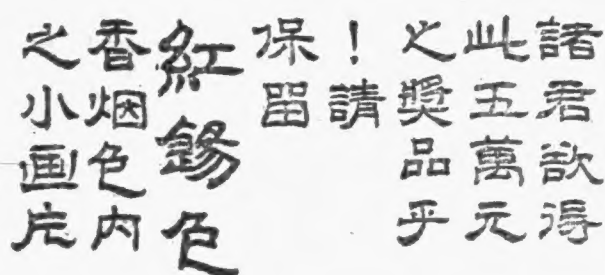 諸君欲得
此五萬元
之獎品乎
！請
保留
紅錫包
香烟包内
之小画片